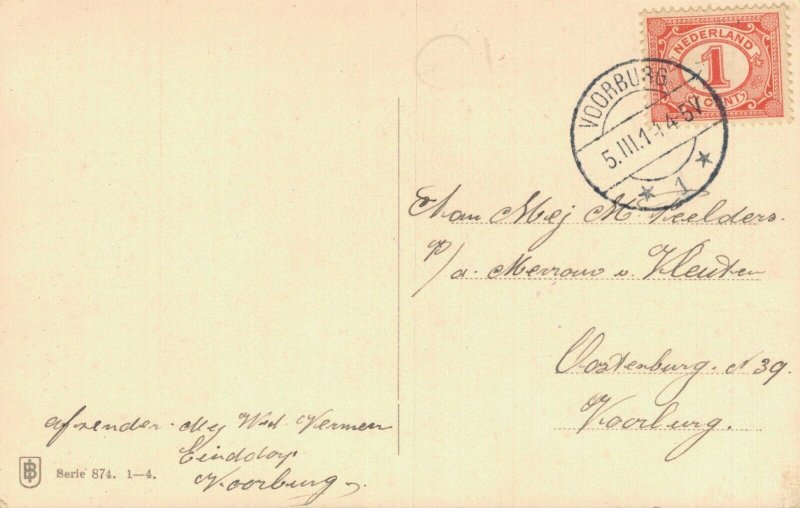 NEDERLAND
1
CENT
VOORBURG
5.III.1 4-5V
1
Aan Mej M. Veelders.
p/a. Mevrouw v. Vleuten
Oostenburg. N 39.
Voorburg.
afzender. Mej Wed. Vermeu
Einddorp
Voorburg
Serie 874. 1-4.